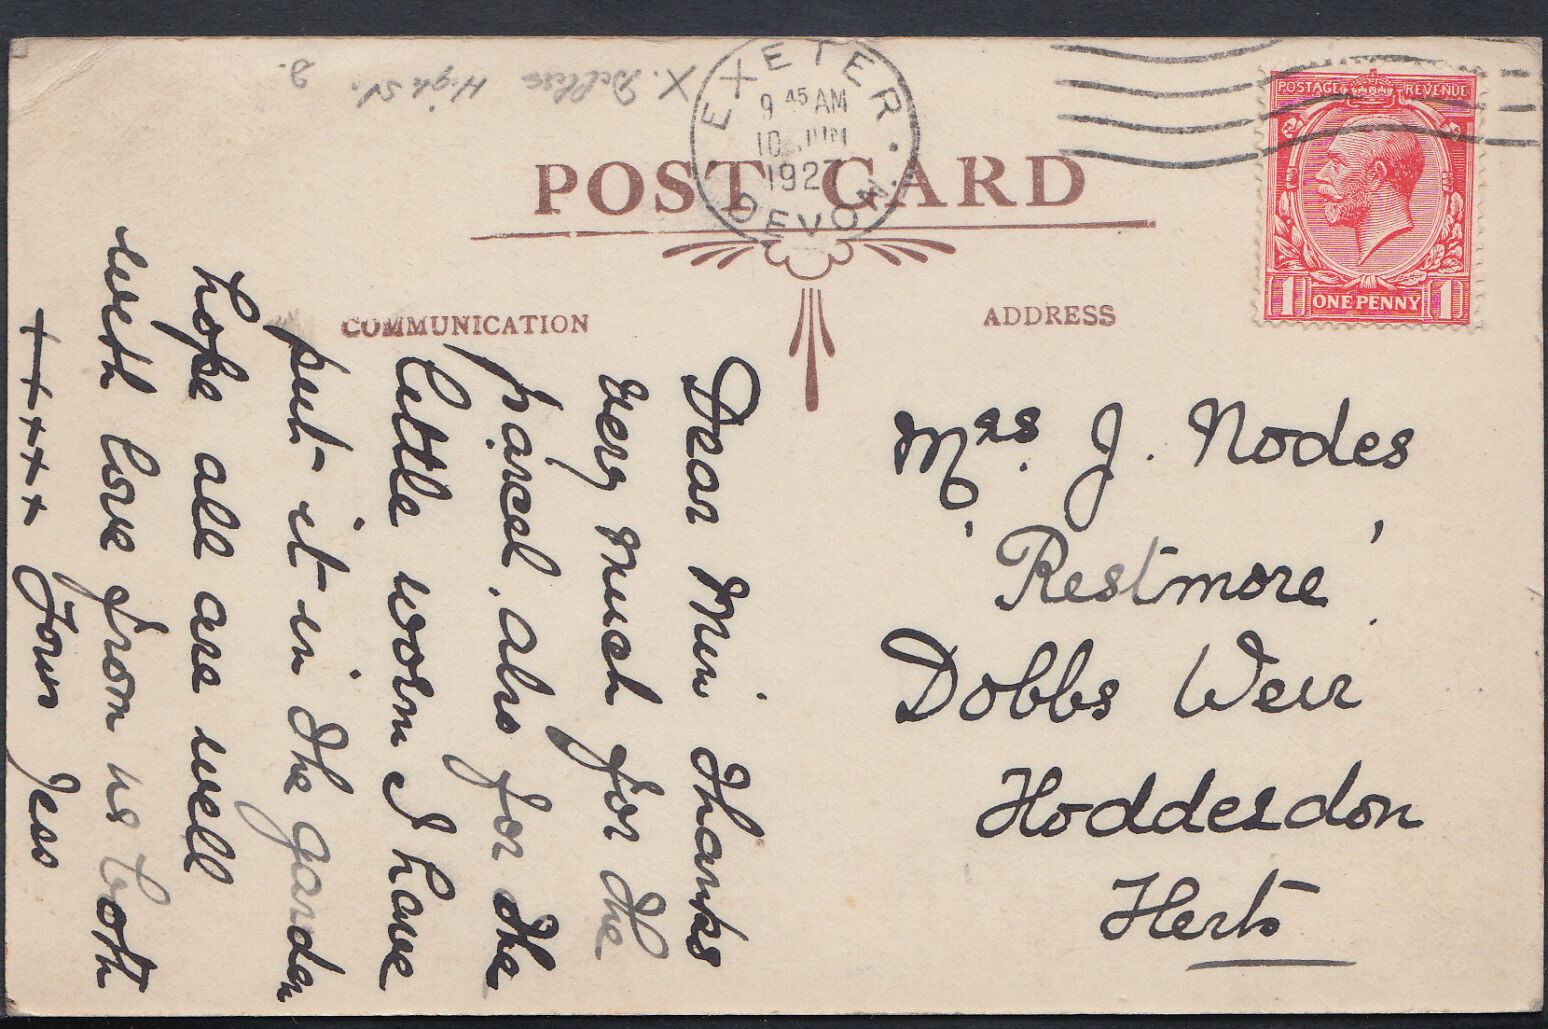 EXETER
9 45 AM
10 JUN
1927
DEVON
POSTAGE REVENUE
1 ONE PENNY 1
POST CARD
COMMUNICATION
ADDRESS
Dear Min Thanks
very much for the
parcel, also for the
little worm I have
put it in the garden
hope all are well
with love from us both
++++ Yours Jess
Mrs. J. Nodes
'Restmore'
Dobbs Weir
Hoddesdon
Herts
X. High St.